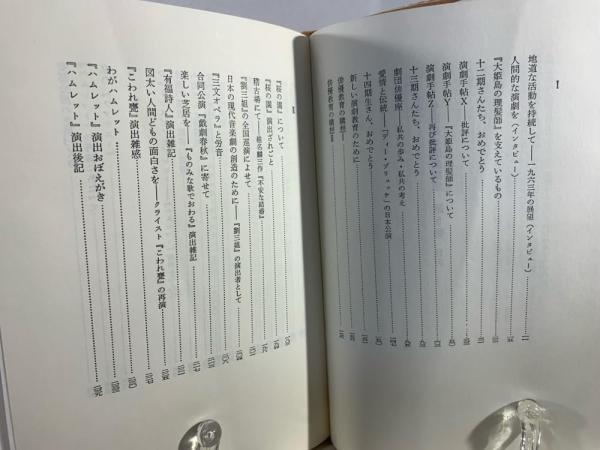 I
地道な活動を持続して——一九六三年の展望（インタビュー）
人間的な演劇を（インタビュー）
『大姫島の理髪師』を支えているもの
十二期さんたち、おめでとう
演劇手帖X——批評について
演劇手帖Y——『大姫島の理髪師』について
演劇手帖Z——再び批評について
十三期さんたち、おめでとう
劇団俳優座——私共の歩み・私共の考え
愛情と伝統——「ディー・ブリュッケ」の日本公演
十四期生さん、おめでとう
新しい演劇教育のために
俳優教育の構想 I
俳優教育の構想 II
II
『桜の園』について
『桜の園』演出ざれごと
稽古場にて——椎名麟三作『不安な結婚』
『劉三姐』の全国巡演によせて
日本の現代音楽劇の創造のために——『劉三姐』の演出者として
『三文オペラ』と労音
合同公演『戯劇春秋』に寄せて
楽しい芝居を——『ものみな歌でおわる』演出雑記
『有福詩人』演出雑記
図太い人間どもの面白さを——クライスト『こわれ甕』の再演
『こわれ甕』演出雑感
わがハムレット
『ハムレット』演出おぼえがき
『ハムレット』演出後記